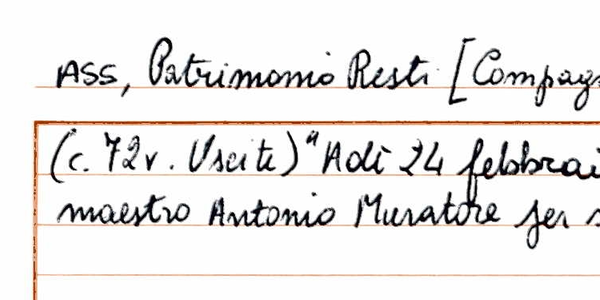 ASS, Patrimonio Resti [Compag
(c. 72v. Uscite) "Adì 24 febbrai
maestro Antonio Muratore per s